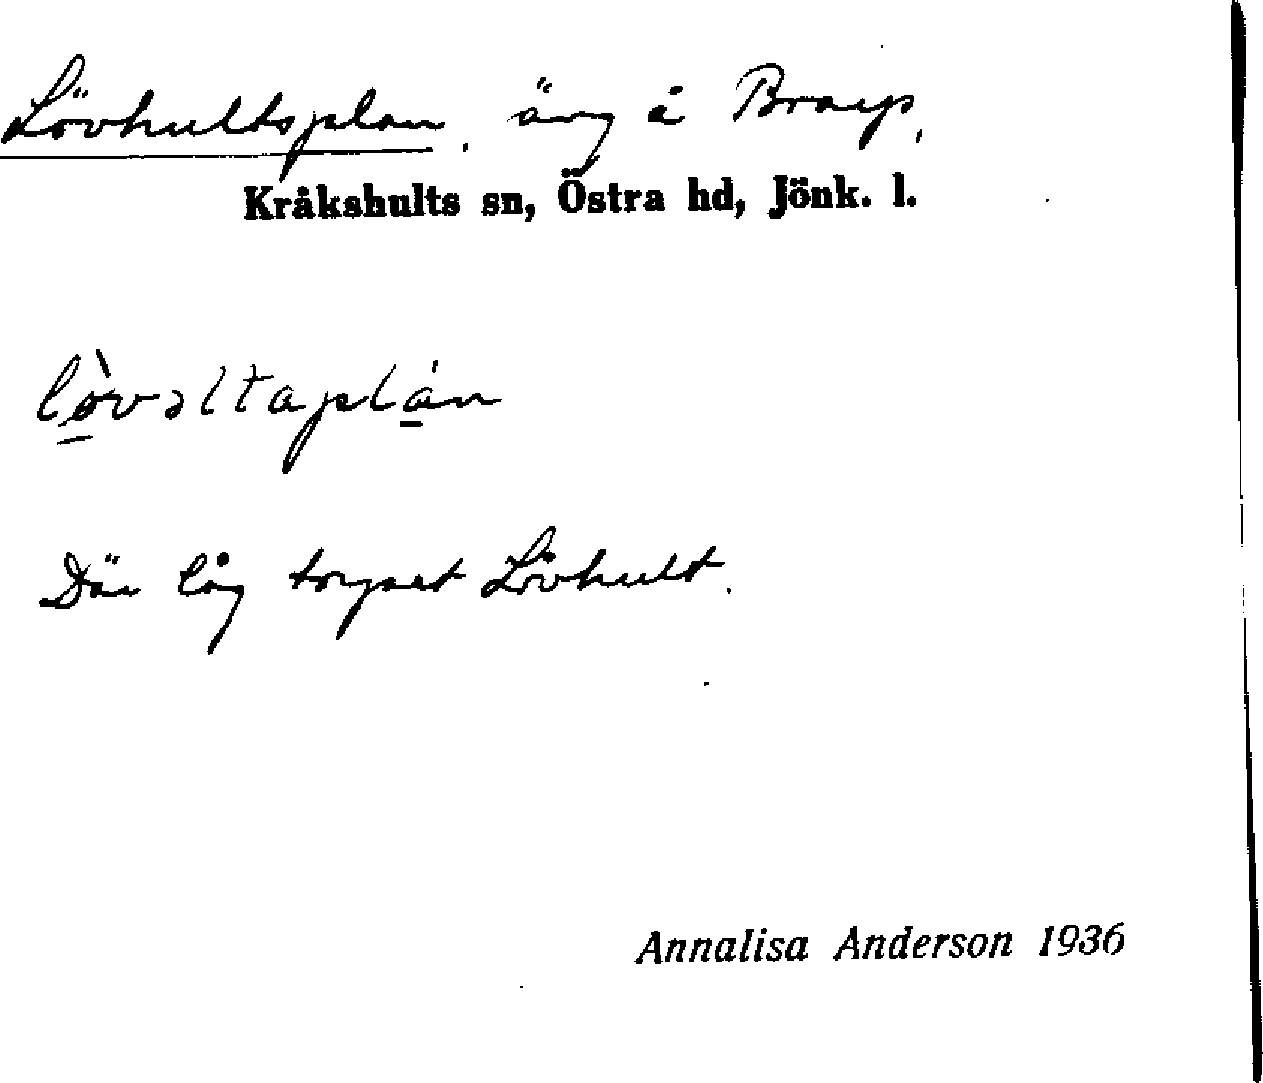 Lövhultsplan, äng å Brayp,
Kråkshults sn, Östra hd, Jönk. l.
lø̀vəltaplán
Där låg torpet Lövhult.
Annalisa Anderson 1936